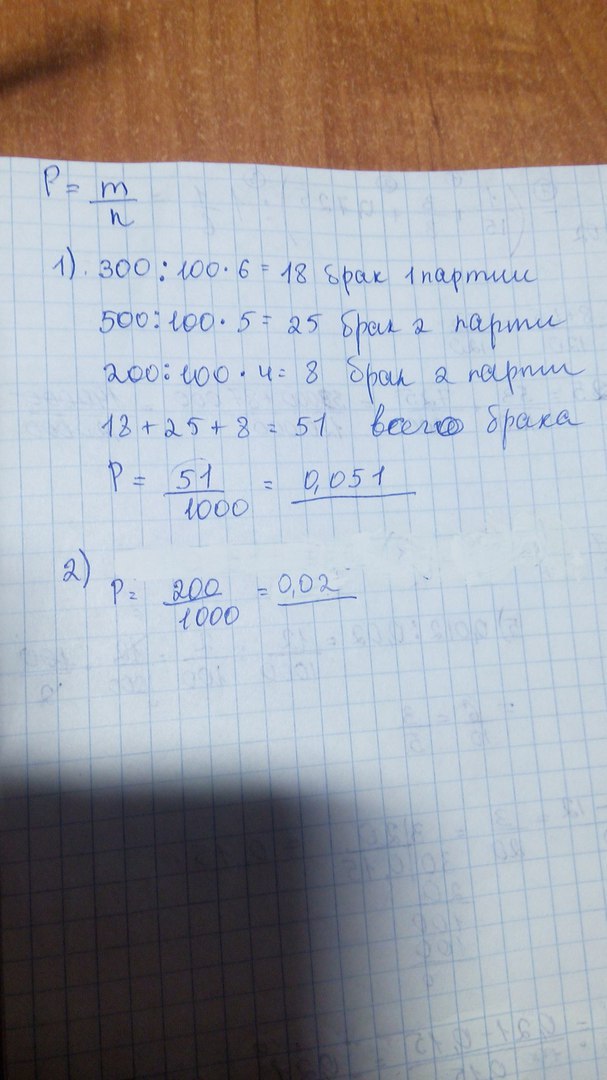 P = m/n
1). 300 : 100 · 6 = 18 брак 1 партии
500 : 100 · 5 = 25 брак 2 парти
200 : 100 · 4 = 8 брак 2 партии
18 + 25 + 8 = 51 всего брака
P = 51/1000 = 0,051
2) P = 200/1000 = 0,02